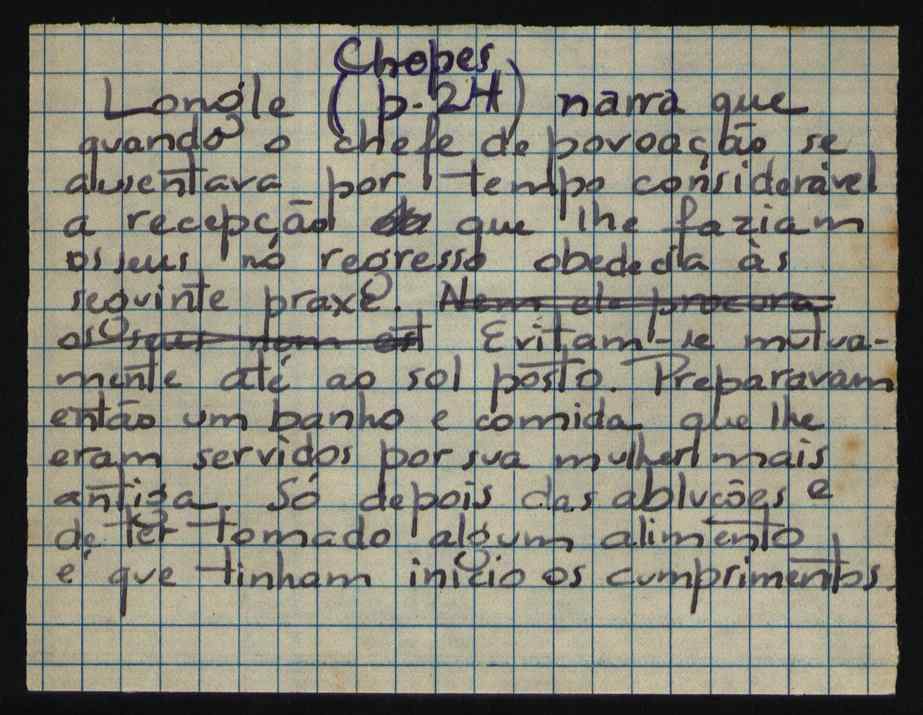 Chopes
Longle (p. 24) narra que
quando o chefe de povoação se
ausentava por tempo considerável
a recepção que lhe faziam
os seus no regresso obedecia às
seguinte praxe. Nem ele procura
os seus nem est Evitam-se mutua-
mente até ao sol pôsto. Preparavam
então um banho e comida que lhe
eram servidos por sua mulher mais
antiga. Só depois das abluções e
de ter tomado algum alimento
é que tinham início os cumprimentos.